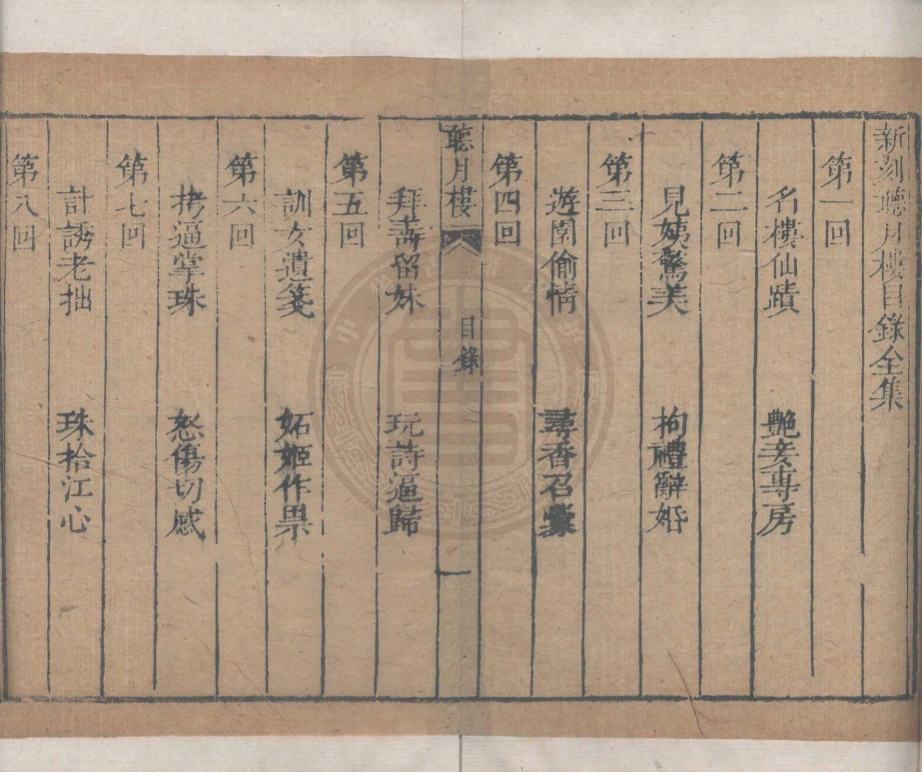 新刻聽月樓目錄全集
第一回
名樓仙蹟 艷妾專房
第二回
見姨驚美 拘禮辭婚
第三回
遊園偷情 尋香召釁
第四回
聽月樓 目錄 一
拜壽留妹 玩詩逼歸
第五回
訓女遺箋 妬姬作祟
第六回
拷逼掌珠 怒傷切戚
第七回
計誘老拙 珠拾江心
第八回